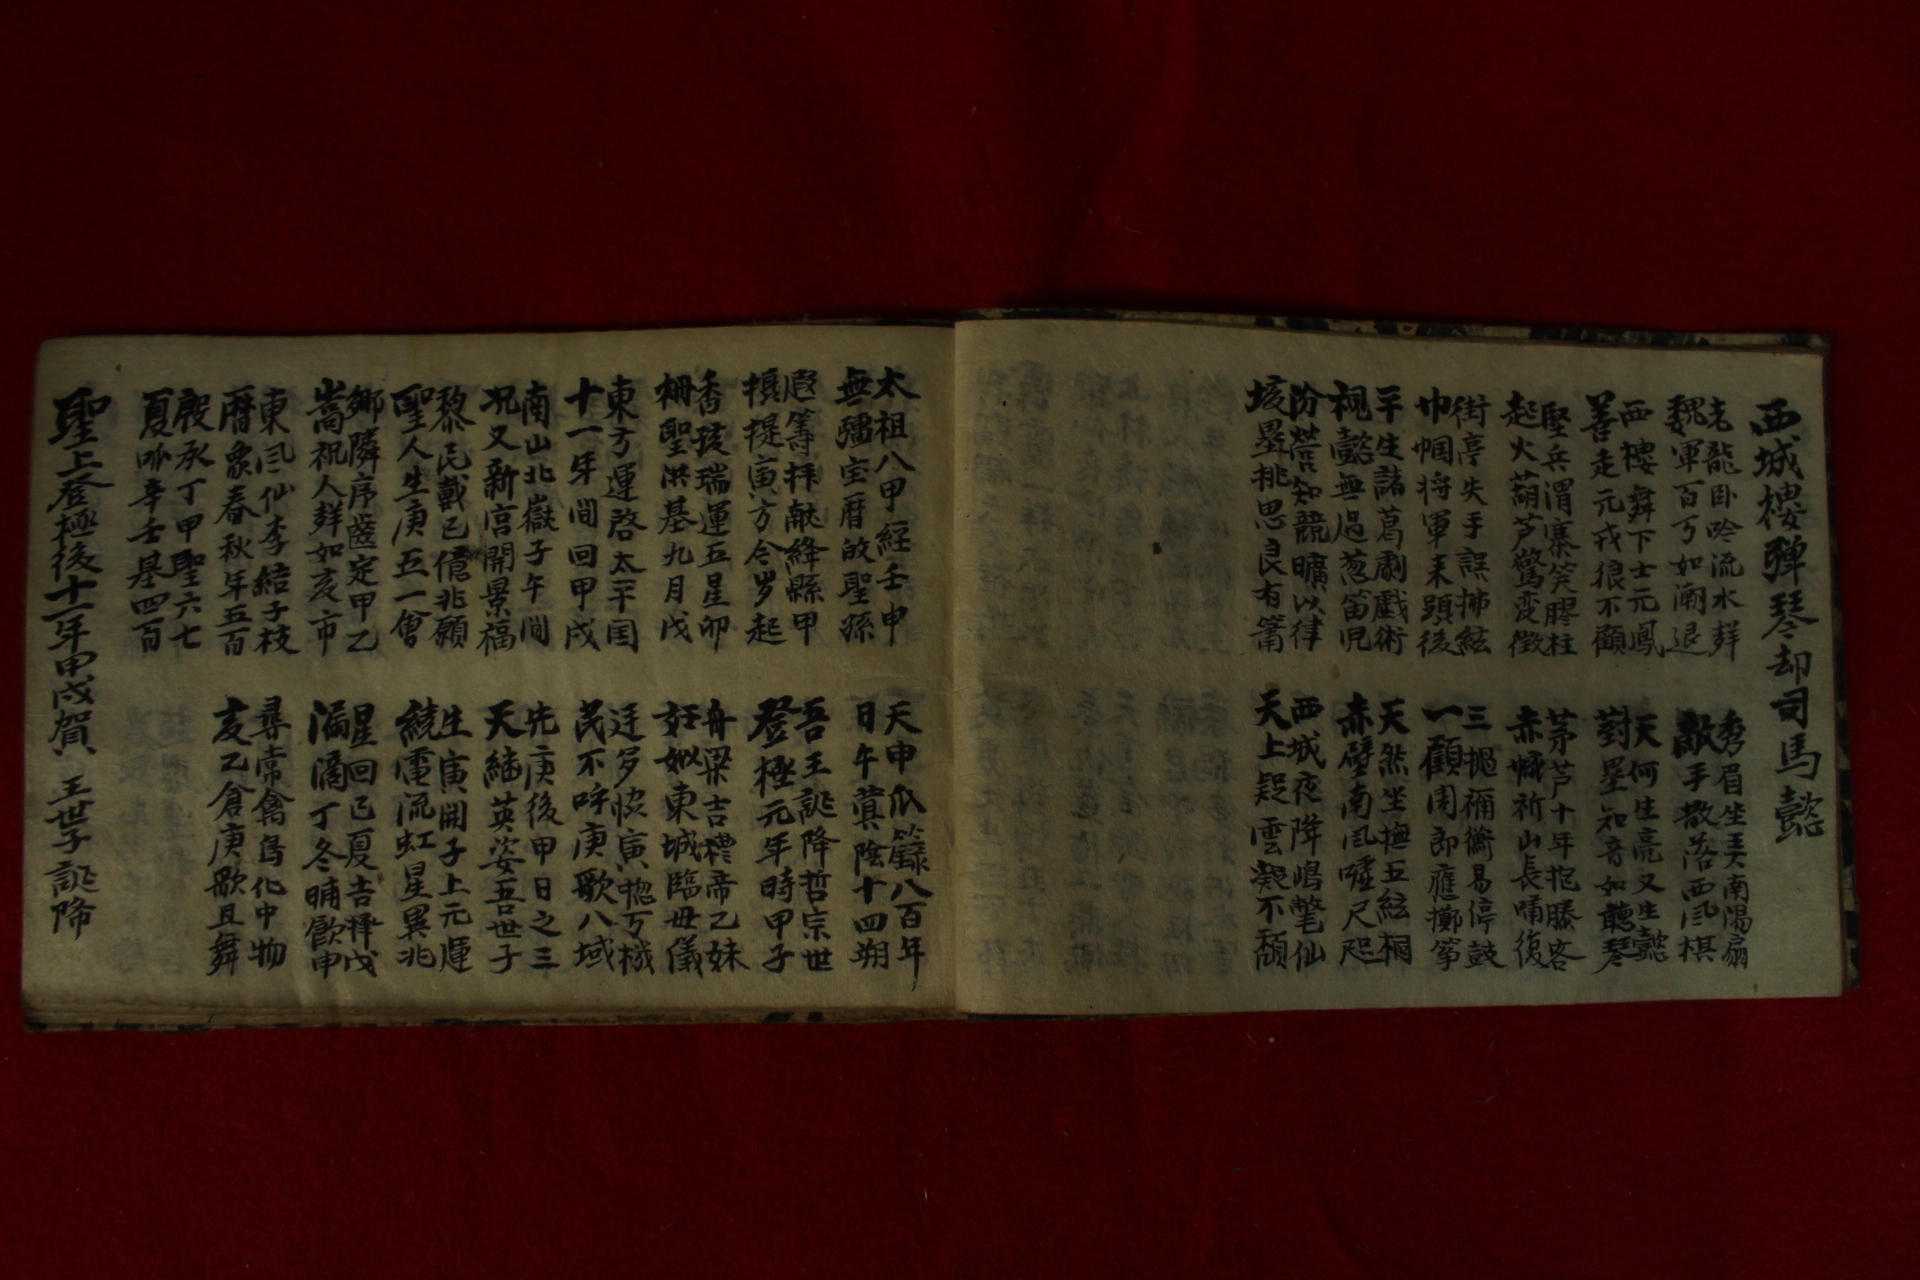 西城樓彈琴却司馬懿
老龍臥吟流水群
魏軍百万如潮退
秀眉坐美南陽扇
敵手散落西風棋
西樓舞下士元鳳
善走元戎狼不顧
天何生亮又生懿
對壘知音如聽琴
堅兵渭寨笑膠柱
起火葫芦驚變徵
茅芦十年抱膝客
赤蠊祈山長嘯復
街亭失手誤拂絃
巾幗將軍來頭後
三撾禰衡易停鼓
一顧周郎應擲箏
平生諸葛劇戲術
視懿無過葱笛児
天然坐撫五絃桐
赤壁南風噓尺咫
汾營知競曠以律
垓壘挑思良有簫
西城夜降嶋氅仙
天上疑雲凝不頹
太祖八甲經壬申
無彊宝曆的聖孫
天申瓜籙八百年
日午蓂陰十四朔
遐籌拜献絳縣甲
攝提寅方今岁起
吾王誕降哲宗世
登極元年時甲子
香孩瑞運五星卯
柵聖洪基九月戊
舟梁吉禮帝乙妹
妊姒東城臨母儀
東方運啓太平国
十一年间回甲戌
廷多惔寅惚万機
民不呼庚歌八域
南山北嶽子午間
况又新宮開景福
先庚後甲日之三
天緒英姿吾世子
黎民戴己億兆願
聖人生庚五一會
生寅開子上元運
繞電流虹星異兆
鄉隣序齒定甲乙
嵩祝人群如亥市
星回己夏吉擇戊
漏滴丁冬晡飮申
東風仙李結子枝
曆象春秋年五百
尋常禽鳥化中物
亥乙倉庚歌且舞
殷承丁甲聖六七
夏呼辛壬基四百
聖上登極後十一年甲戌賀 王世子誕降